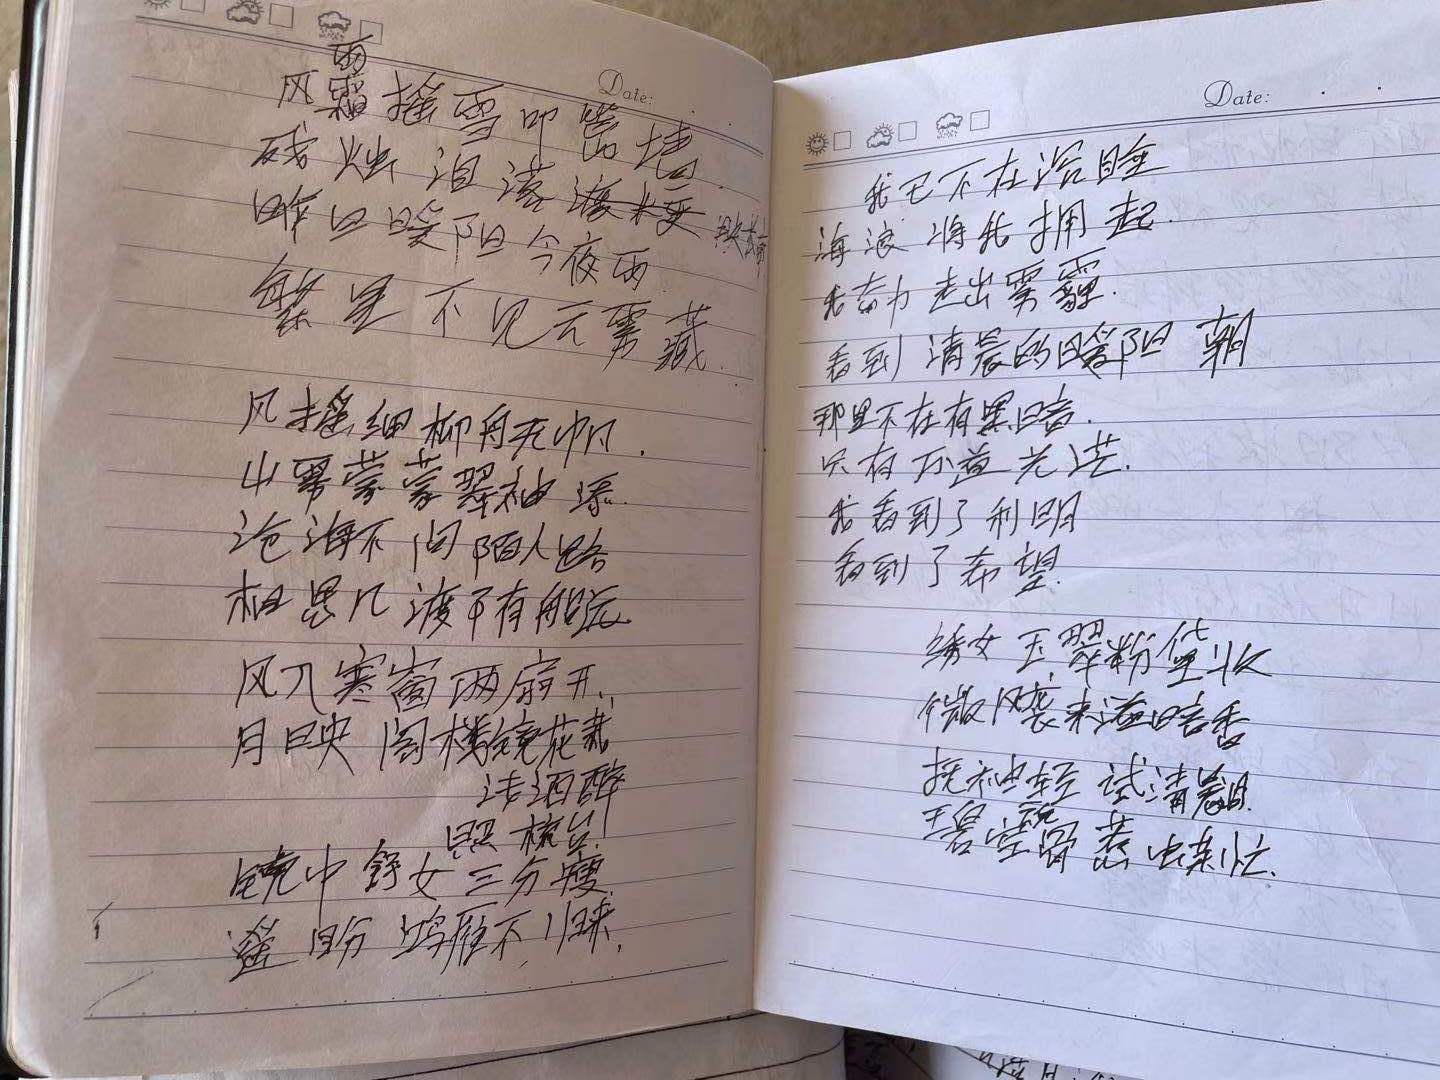 Date:
雨
风霜摇雪叩窗墙
残烛泪落
昨日暖阳今夜雨
繁星不见云雾藏.
风摇细柳舟无帆.
山雾蒙蒙翠袖添.
沧海不问陌人路
相思几渡不有船远
风入寒窗两扇开.
月映阁楼镜花著
洁酒醉
照梳台
镜中舒女三分瘦.
遥盼鸿雁不归来.
Date:
我已不在沿睡
海浪将我拥起.
我努力走出雾霾.
看到清晨的暖阳 朝
那里不在有黑暗.
只有 光芒.
我看到了利明
看到了希望.
绣女玉翠粉黛妆
微风袭来溢暗香
抚袖轻试清
忙.